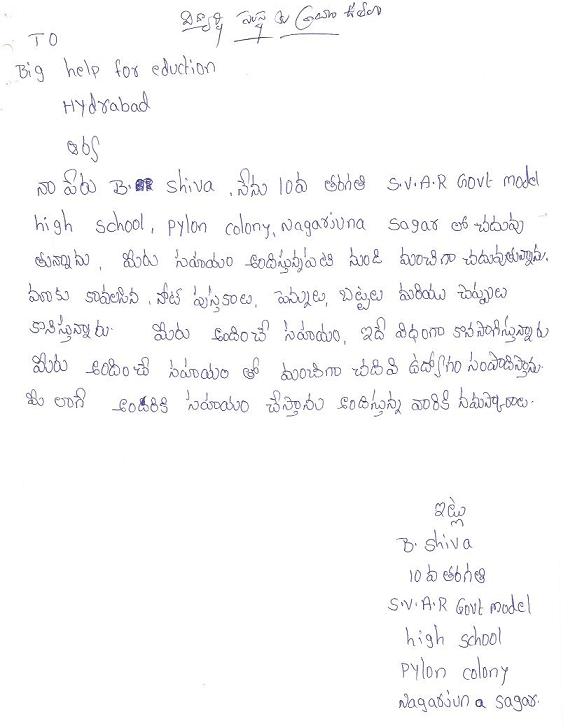 విద్యార్థి సంస్థ కు వ్రాయు లేఖ
TO
Big help for eduction
Hydrabad
ఆర్య
నా పేరు B. shiva , నేను 10వ తరగతి S.V.A.R Govt model
high school, pylon colony, Nagarjuna sagar లో చదువు
తున్నాను, మీరు సహాయం అందిస్తున్నపటి నుండి మంచిగా చదువుతున్నాను.
మాకు కావలసిన , నోట్ పుస్తకాలు, పెన్నులు, బట్టలు మరియు చెప్పులు
కొనిస్తున్నారు. మీరు అందించే సహాయం, ఇదే విధంగా కొనసాగిస్తున్నారు
మీరు అందించే సహాయం తో మంచిగా చదివి ఉద్యోగం సంపాదిస్తాను.
మీ లాగే అందరికి సహాయం చేస్తాను అందిస్తున్న వారికి నమస్కారాలు.
ఇట్లు
B. shiva
10 వ తరగతి
S.V.A.R Govt model
high school
pylon colony
Nagarjuna sagar.